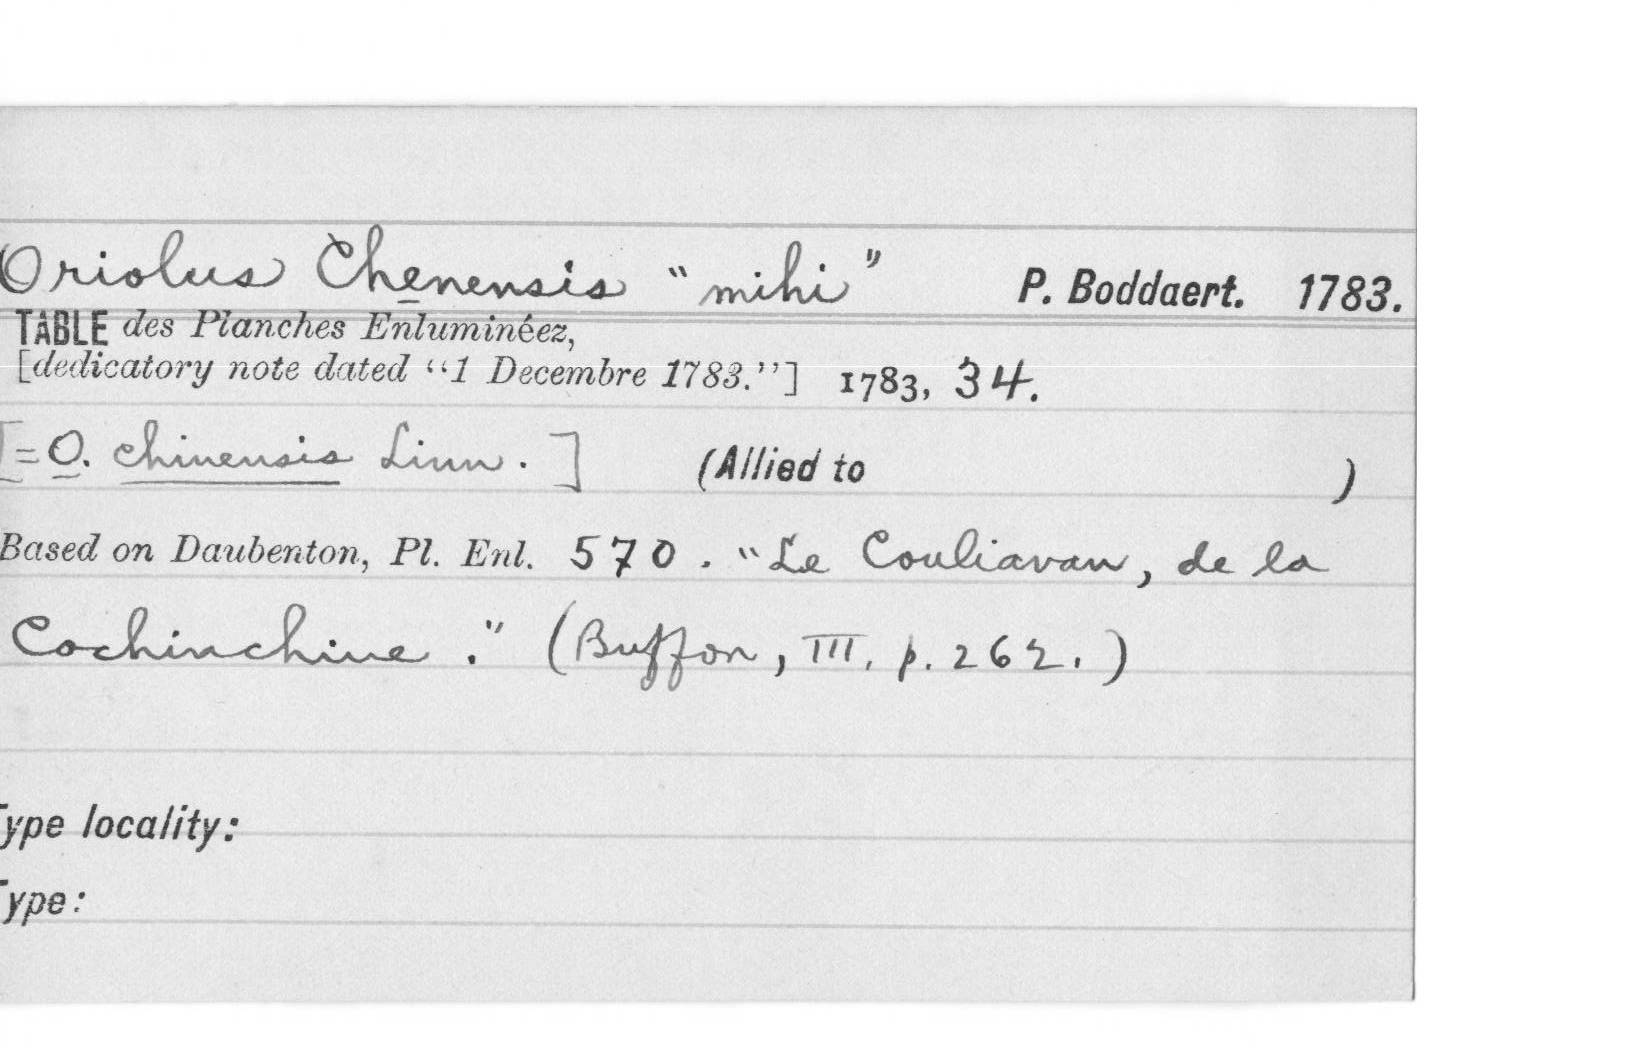 Oriolus Chenensis "mihi" P. Boddaert. 1783.
TABLE des Planches Enluminéez,
[dedicatory note dated "1 Decembre 1783."] 1783, 34.
[=O. chinensis Linn.] (Allied to )
Based on Daubenton, Pl. Enl. 570. "Le Couliavan, de la
Cochinchine." (Buffon, III, p. 262.)
Type locality:
Type: